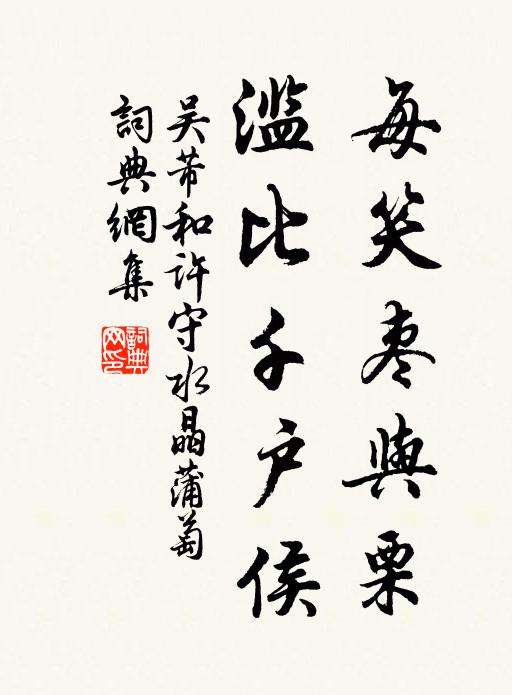 每笑枣與栗
滥比千户侯
吴芾和许守水晶蒲萄
詞典網集
詞典网印